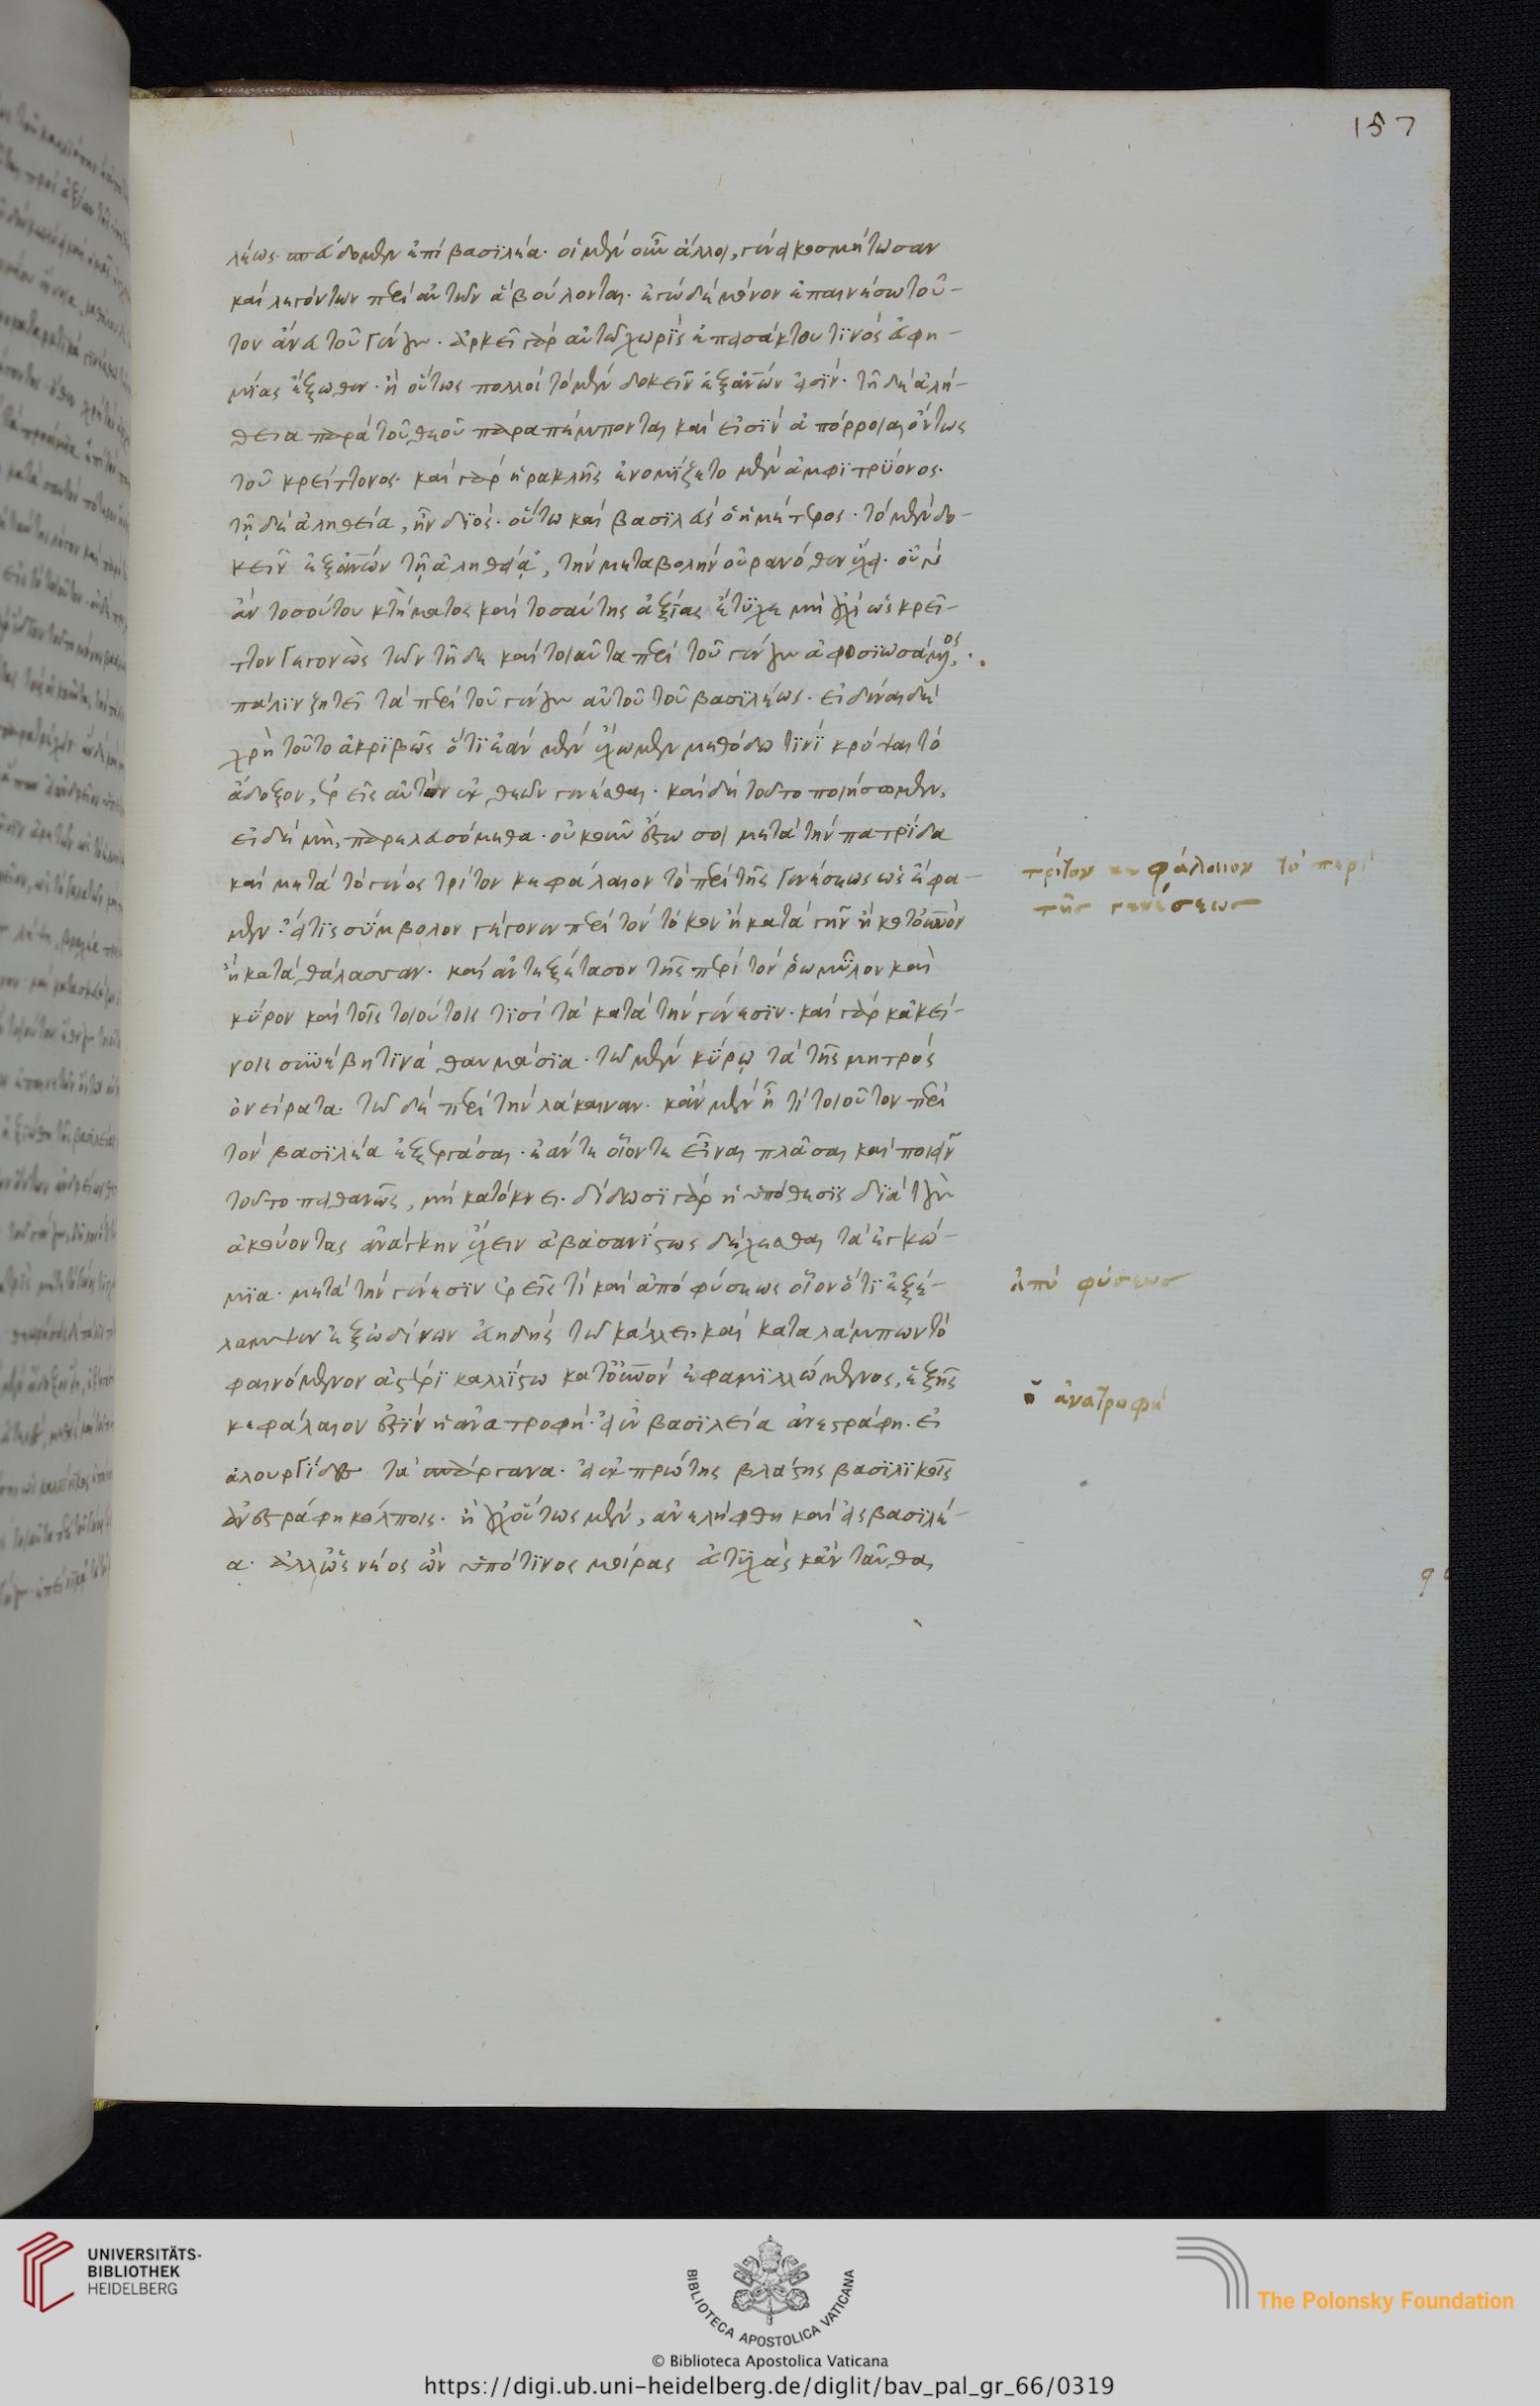 157
λέως σπεύδομεν ἐπὶ βασιλέα. οἱ μὲν οὖν ἄλλοι, γένει κοσμείτωσαν
καὶ λεγόντων περὶ αὐτῶν ἃ βούλονται. ἐγὼ δὲ μόνον ἐπαινέσω τοῦ-
τον ἄνευ τοῦ γένους. ἀρκεῖ γὰρ αὐτῷ χωρὶς ἐπεισάκτου τινὸς εὐφη-
μίας ἔξωθεν. ἢ οὕτως πολλοὶ τὸ μὲν δοκεῖν ἐξ ἀνθρώπων εἰσίν. τῇ δὲ ἀλη-
θεία παρὰ τοῦ θεοῦ παραπέμπονται καὶ εἰσὶν ἀπόρροιαι ὄντως
τοῦ κρείττονος. καὶ γὰρ ἡρακλῆς ἐνομίζετο μὲν ἀμφιτρύονος.
τῇ δὲ ἀληθεία, ἦν διός. οὕτω καὶ βασιλεὺς ὁ ἡμέτερος. τὸ μὲν δο-
κεῖν ἐξ ἀνθρώπων τῇ ἀληθείᾳ, τὴν μεταβολὴν οὐρανόθεν ἔχει. οὐ γὰρ
ἂν τοσούτου κτήματος καὶ τοσαύτης ἀξίας ἔτυχε μὴ οὐχὶ ὡς κρεῖ-
ττον γεγονὼς τῶν τῇδε καὶ τοιαῦτα περὶ τοῦ γένους ἀφοσιωσάμενος.
πάλιν ζητεῖ τὰ περὶ τοῦ γένους αὐτοῦ τοῦ βασιλέως. εἰδέναι δὲ
χρὴ τοῦτο ἀκριβῶς ὅτι ἐὰν μὲν ἔχωμεν μεθόδω τινὶ κρύψαι τὸ
ἄδοξον, ἐρεῖς αὐτὸν ἐκ θεῶν γενέσθαι. καὶ δὴ τοῦτο ποιήσομεν,
εἰ δὲ μὴ, παρελευσόμεθα. οὐκοῦν ἔστω σοι μετὰ τὴν πατρίδα
καὶ μετὰ τὸ γένος τρίτον κεφάλαιον τὸ περὶ τῆς γενέσεως ὡς ἔφα-
μεν. εἴ τις σύμβολον γέγονεν περὶ τὸν τόκον ἢ κατὰ γῆν ἢ κατ οὐρανὸν
ἢ κατὰ θάλασσαν. καὶ ἀντεξέτασον τῆς περὶ τὸν ῥωμῦλον καὶ
κῦρον καὶ τοῖς τοιούτοις τισὶ τὰ κατὰ τὴν γένεσιν. καὶ γὰρ κἀκεί-
νοις συνέβη τινὰ θαυμάσια. τῷ μὲν κύρῳ τὰ τῆς μητρὸς
ὀνείρατα. τῷ δὲ περὶ τὴν λάκαιναν. κἂν μὲν ᾖ τὶ τοιοῦτον περὶ
τὸν βασιλέα ἐξεργάσαι. ἐάν τε οἷόν τε εἶναι πλάσαι καὶ ποιεῖν
τοῦτο πιθανῶς, μὴ κατόκνει. δίδωσι γὰρ ἡ ὑπόθεσις διὰ τοὺς
ἀκούοντας ἀνάγκην ἔχειν ἀβασανίστως δέχεσθαι τὰ ἐγκώ-
μια. μετὰ τὴν γένεσιν ἐρεῖς τὶ καὶ ἀπὸ φύσεως οἷον ὅτι ἐξέ-
λαμψεν ἐξ ὠδίνων εὐειδὴς τῷ κάλλει καὶ καταλάμπων τὸ
φαινόμενον ἀστέρι καλλίστω κατ οὐρανὸν ἐφαμιλλώμενος. ἑξῆς
κεφάλαιον ἐστὶν ἡ ἀνατροφή. εἰ ἐν βασιλεία ἀνεστράφη. εἰ
ἁλουργίδες τὰ σπάργανα. εἰ ἐκ πρώτης βλάστης βασιλικοῖς
ἀνεστράφη κόλποις. ἢ οὐχ οὕτως μὲν, ἀνελήφθη καὶ εἰς βασιλέ-
α. ἀλλ ὡς νέος ὢν ὑπό τινος μοίρας εὐτυχεῖς κἀνταῦθα
τρίτον κεφάλαιον τὸ περὶ
τῆς γενέσεως
ἀπὸ φύσεως
ἀνατροφή
UNIVERSITÄTS-
BIBLIOTHEK
HEIDELBERG
BIBLIOTECA APOSTOLICA VATICANA
The Polonsky Foundation
© Biblioteca Apostolica Vaticana
https://digi.ub.uni-heidelberg.de/diglit/bav_pal_gr_66/0319